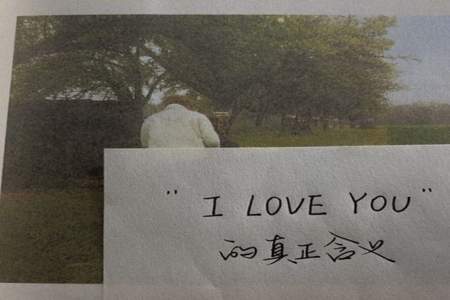 " I LOVE YOU "
的真正含义